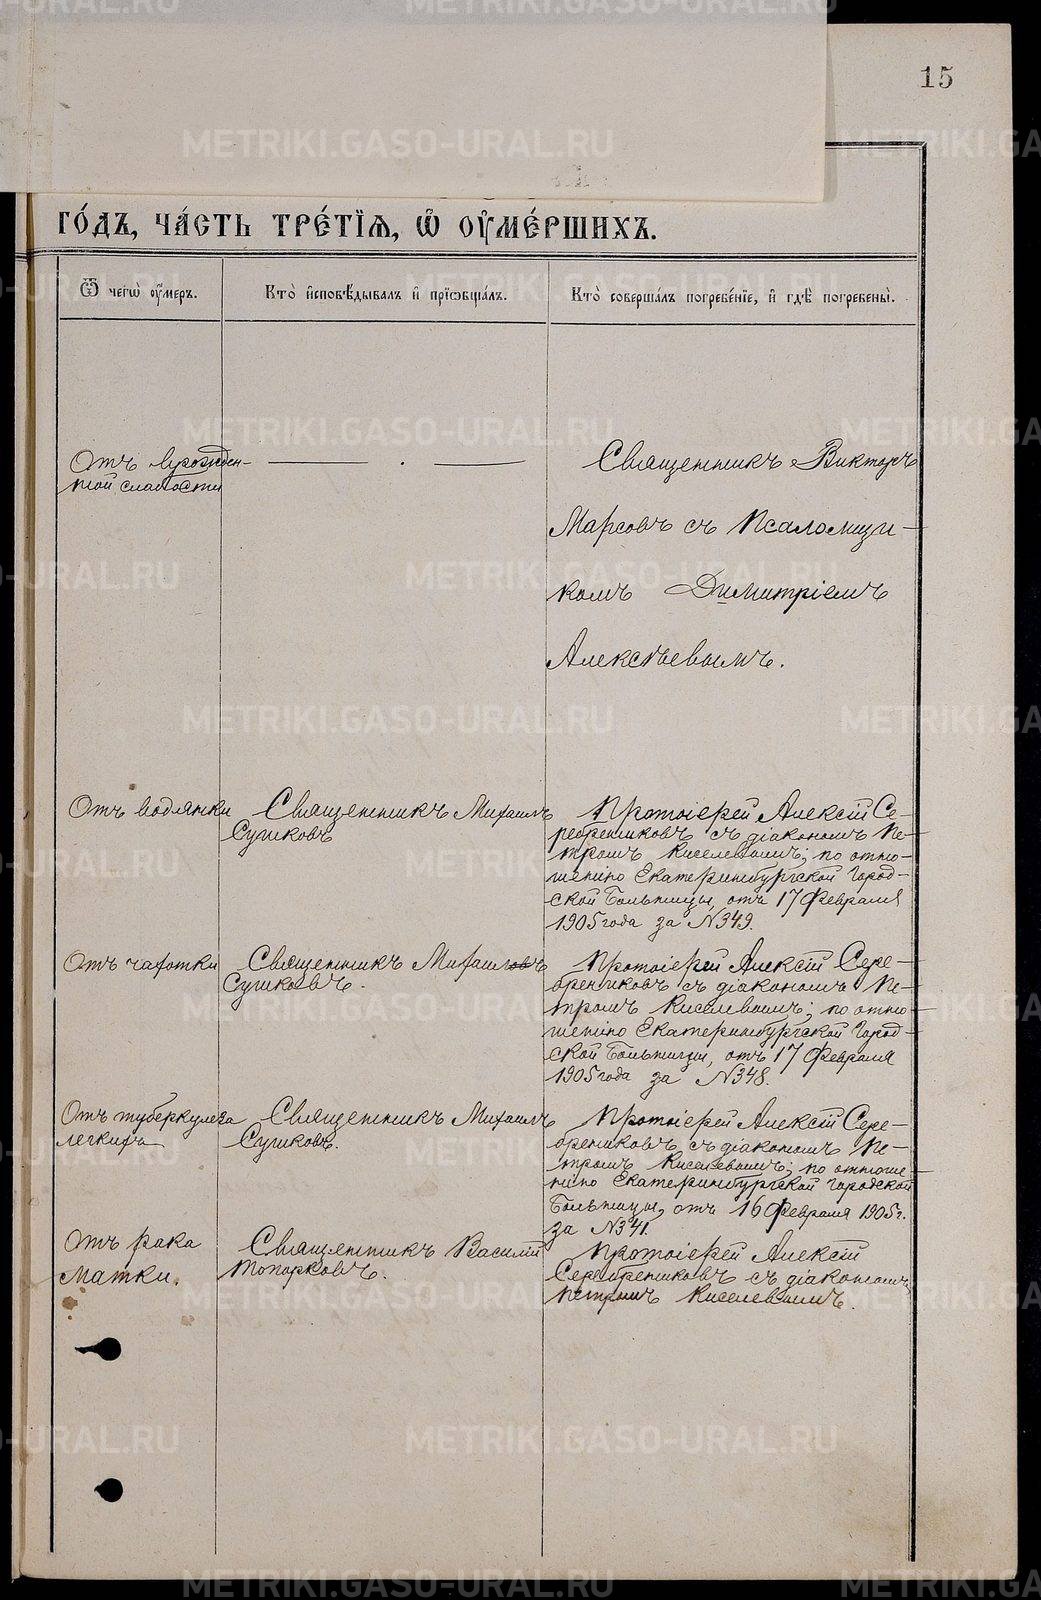 15
го́дъ, ча́сть тре́тїѧ, ѽ оу҆ме́ршихъ.
Ѿ чегѡ̀ оу҆́меръ.
Кто̀ и҆сповѣ́дывалъ и҆ прїѡбща́лъ.
Кто̀ соверша́лъ погребе́нїе, и҆ гдѣ̀ погребены̀.
Отъ врожден-
ной слабости
Священникъ Викторъ
Марсовъ съ Псаломщи-
комъ Димитріемъ
Алексѣевымъ.
Отъ водянки
Священникъ Михаилъ
Сушковъ
Протоіерей Алексій Се-
ребренниковъ съ діакономъ Пе-
тромъ Киселевымъ; по отно-
шенію Екатеринбургской Город-
ской Больницы, отъ 17 Февраля
1905 года за №349.
Отъ чахотки
Священникъ Михаиловъ
Сушковъ.
Протоіерей Алексій Сере-
бренниковъ съ діакономъ Пе-
тромъ Киселевымъ; по отно-
шенію Екатеринбургской Город-
ской Больницы, отъ 17 Февраля
1905 года за №348.
Отъ туберкулеза
легкихъ
Священникъ Михаилъ
Сушковъ.
Протоіерей Алексій Сере-
бренниковъ съ діакономъ Пе-
тромъ Киселевымъ; по отноше-
нію Екатеринбургской городской
Больницы, отъ 16 Февраля 1905 г.
за №341.
Отъ рака
матки.
Священникъ Василій
Топорковъ.
Протоіерей Алексій
Серебренниковъ съ діакономъ
Петромъ Киселевымъ.
METRIKI.GASO-URAL.RU